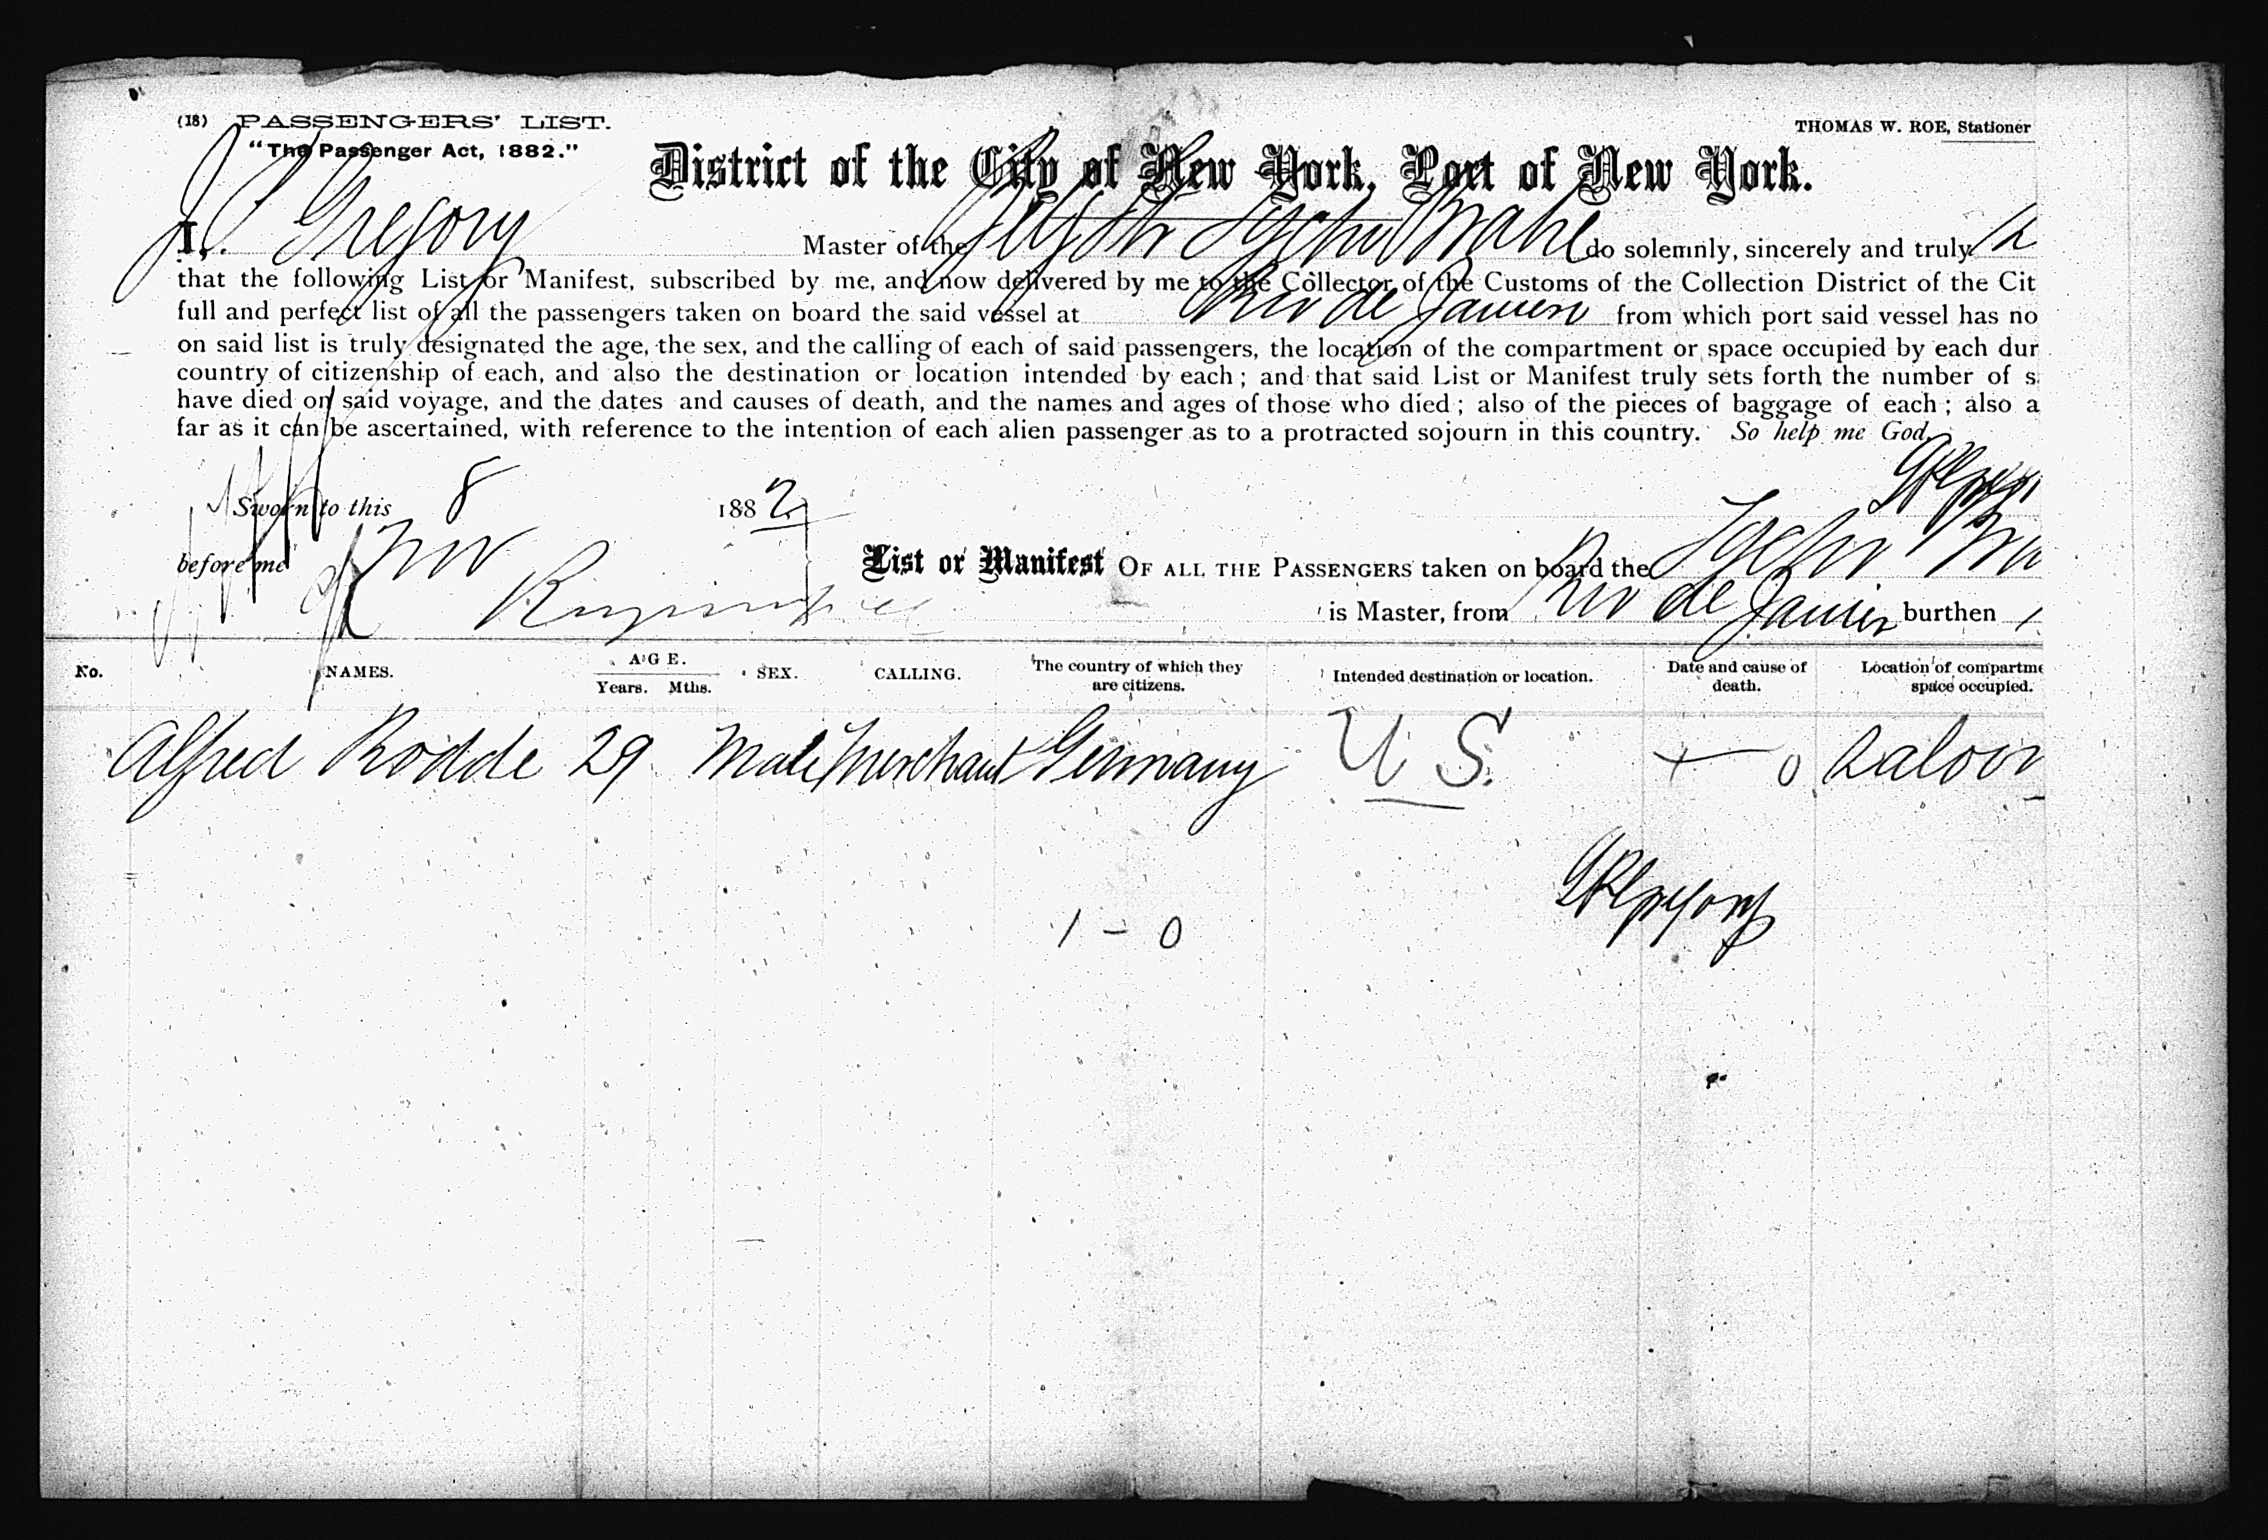 (18) PASSENGERS' LIST. THOMAS W. ROE, Stationer
"The Passenger Act, 1882."
District of the City of New York, Port of New York.
I, Gregory Master of the Tycho Brahe do solemnly, sincerely and truly
that the following List or Manifest, subscribed by me, and now delivered by me to the Collector of the Customs of the Collection District of the Cit
full and perfect list of all the passengers taken on board the said vessel at Rio de Janeiro from which port said vessel has no
on said list is truly designated the age, the sex, and the calling of each of said passengers, the location of the compartment or space occupied by each dur
country of citizenship of each, and also the destination or location intended by each; and that said List or Manifest truly sets forth the number of s
have died on said voyage, and the dates and causes of death, and the names and ages of those who died; also of the pieces of baggage of each; also a
far as it can be ascertained, with reference to the intention of each alien passenger as to a protracted sojourn in this country. So help me God.
Sworn to this 8 1882
before me Nov
List or Manifest OF ALL THE PASSENGERS taken on board the Tycho Bra
is Master, from Rio de Janeiro burthen
No. NAMES. AGE. Years. Mths. SEX. CALLING. The country of which they are citizens. Intended destination or location. Date and cause of death. Location of compartme space occupied.
Alfred Rodde 29 Male Merchant Germany U S. 0 Saloon
1 - 0